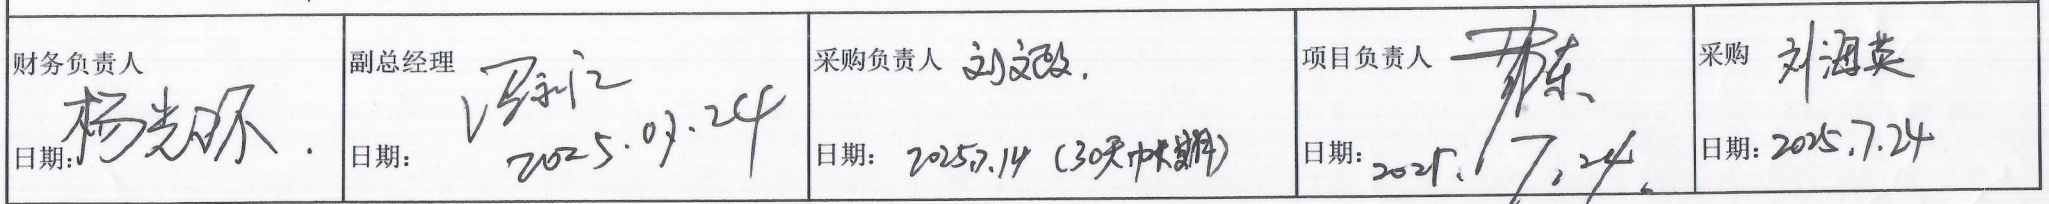 财务负责人
杨光环
日期:
副总经理
日期: 2025.07.24
采购负责人 刘文政.
日期: 2025.7.14 (30天
项目负责人
日期: 2025.7.24.
采购 刘海英
日期: 2025.7.24